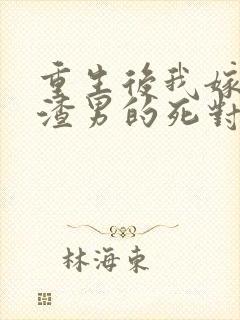 重生後我嫁
渣男的死對
林海東